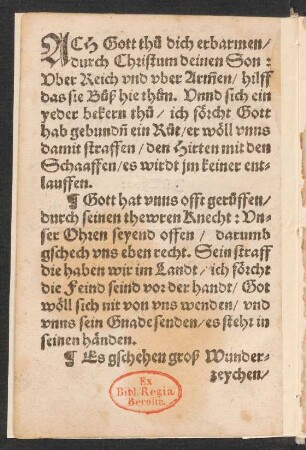 ACH Gott thů dich erbarmen/
durch Christum deinen Son:
Vber Reich vnd vber Arm̃en/ hilff
das sie Bůß hie thůn. Vnnd sich ein
yeder bekern thů/ ich förcht Gott
hab gebundñ ein Růt/ er wöll vnns
damit straffen/ den Hirten mit den
Schaaffen/ es wirdt jm keiner ent-
lauffen.
¶ Gott hat vnns offt gerůffen/
durch seinen thewren Knecht: Vn-
ser Ohren seyend offen/ darumb
gschech vns eben recht. Sein straff
die haben wir im Landt/ ich förcht
die Feind seind vor der handt/ Got
wöll sich nit von vns wenden/ vnd
vnns sein Gnade senden/ es steht in
seinen händen.
¶ Es gschehen groß Wunder-
zeychen/
Ex
Bibl. Regia
Berolin.